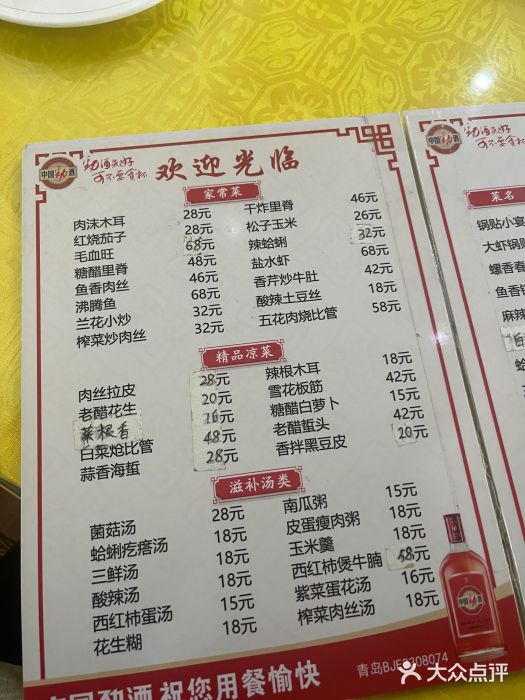 中国劲酒
劲酒虽好
可不要贪杯
欢迎光临
家常菜
肉沫木耳 28元
红烧茄子 28元
毛血旺 68元
糖醋里脊 48元
鱼香肉丝 46元
沸腾鱼 68元
兰花小炒 32元
榨菜炒肉丝 32元
干炸里脊 46元
松子玉米 26元
辣蛤蜊 32元
盐水虾 68元
香芹炒牛肚 42元
酸辣土豆丝 18元
五花肉烧比管 58元
精品凉菜
肉丝拉皮 28元
老醋花生 20元
菜根香 16元
白菜炝比管 48元
蒜香海蜇 28元
辣根木耳 18元
雪花板筋 42元
糖醋白萝卜 15元
老醋蜇头 42元
香拌黑豆皮 20元
滋补汤类
菌菇汤 28元
蛤蜊疙瘩汤 18元
三鲜汤 18元
酸辣汤 18元
西红柿蛋汤 15元
花生糊 18元
南瓜粥 15元
皮蛋瘦肉粥 18元
玉米羹 18元
西红柿煲牛腩 68元
紫菜蛋花汤 16元
榨菜肉丝汤 18元
中国劲酒 祝您用餐愉快
中国劲酒
劲酒虽好
可不要贪杯
菜名
锅贴小宴
大虾锅贴
螺香春
鱼香
麻辣
大众点评